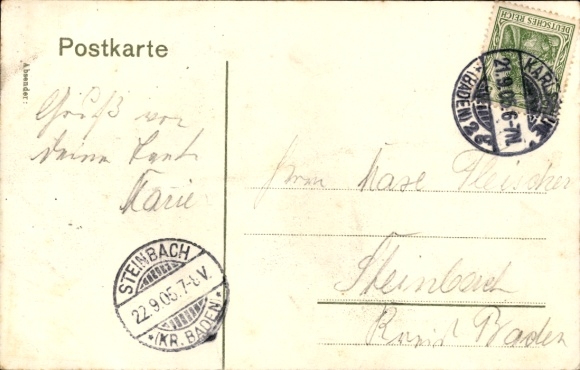 Postkarte
Absender:
Gruß von
deine Tante
Marie
DEUTSCHES REICH
KARLSRUHE
21.9.05.6-7N.
(BADEN) 2
Max Fleischer
Steinbach
Kreis Baden
STEINBACH
22.9.05.7-8V.
*(KR. BADEN)*